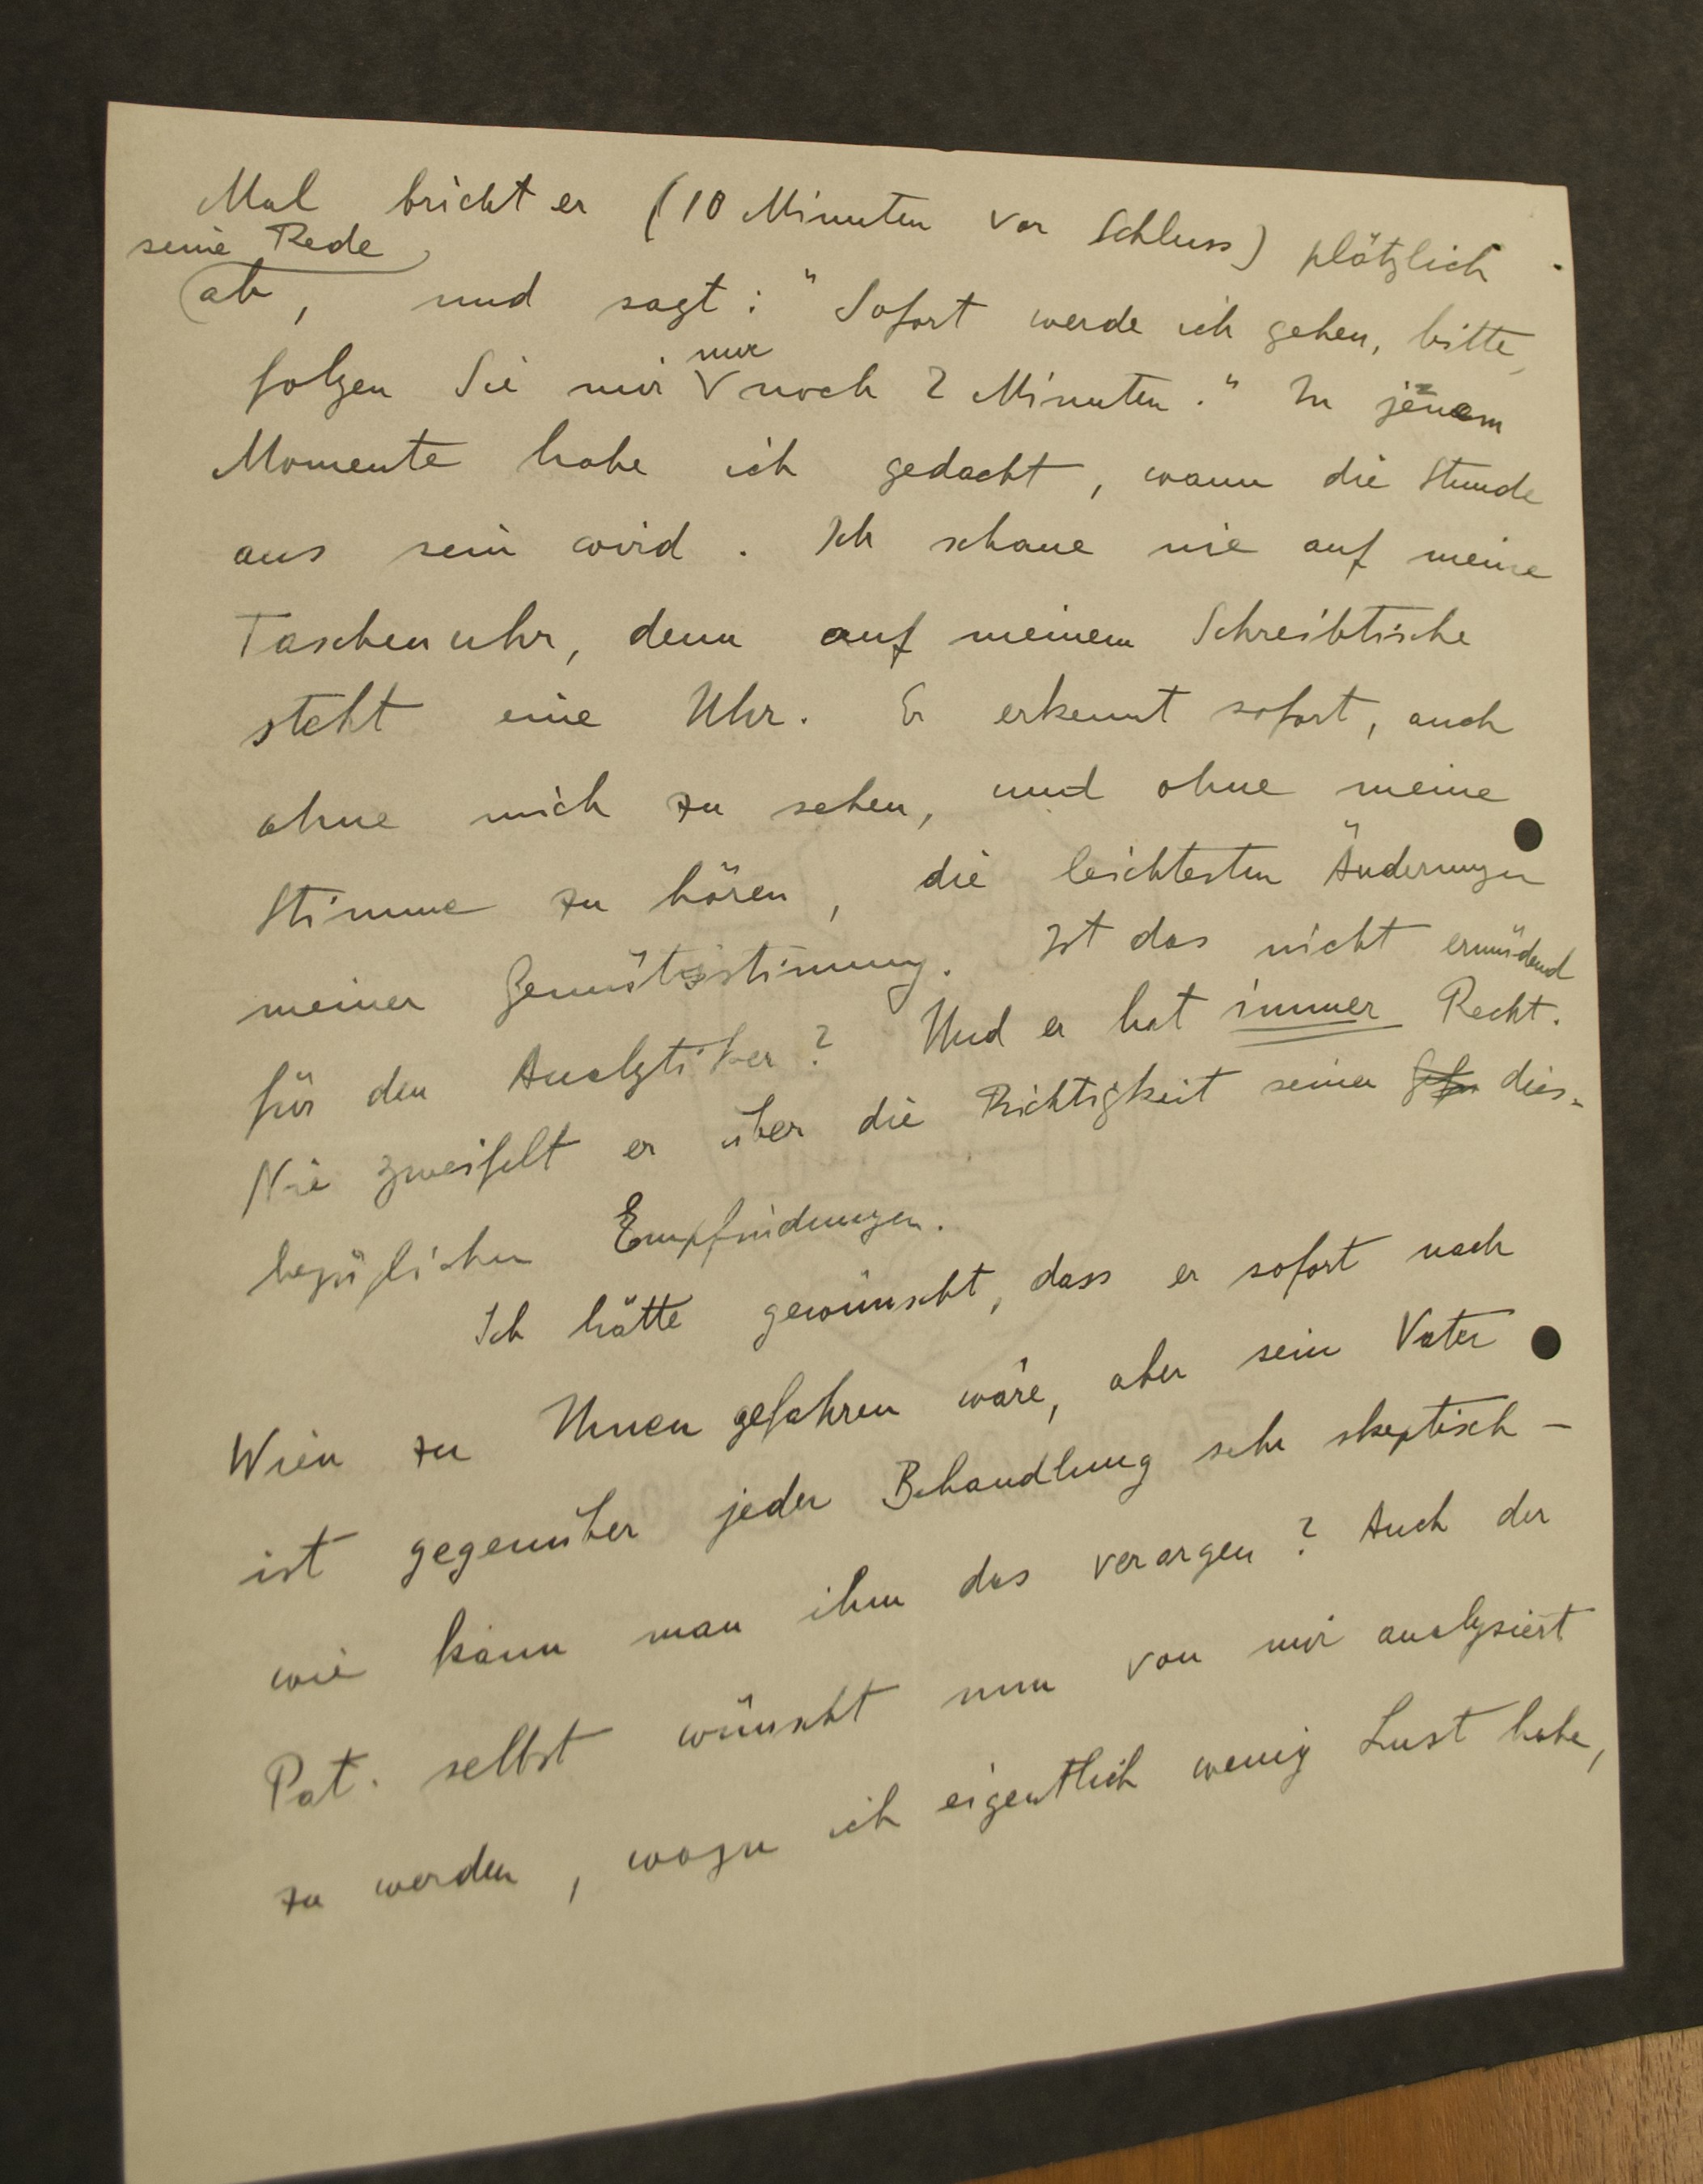 Mal bricht er (10 Minuten vor Schluss) plötzlich
seine Rede
ab, und sagt: "Sofort werde ich gehen, bitte,
nur
folgen Sie mir noch 2 Minuten." In jenem
Momente habe ich gedacht, wann die Stunde
aus sein wird. Ich schaue nie auf meine
Taschenuhr, denn auf meinem Schreibtische
steht eine Uhr. Er erkennt sofort, auch
ohne mich zu sehen, und ohne meine
Stimme zu hören, die leichtesten Änderungen
meiner Gemütsstimmung. Ist das nicht ermüdend
für den Analytiker? Und er hat immer Recht.
Nie zweifelt er über die Richtigkeit seiner dies-
bezüglichen Empfindungen.
Ich hätte gewünscht, dass er sofort nach
Wien zu Ihnen gefahren wäre, aber sein Vater
ist gegenüber jeder Behandlung sehr skeptisch –
wie kann man ihm das verargen? Auch der
Pat. selbst wünscht nun von mir analysiert
zu werden, wozu ich eigentlich wenig Lust habe,